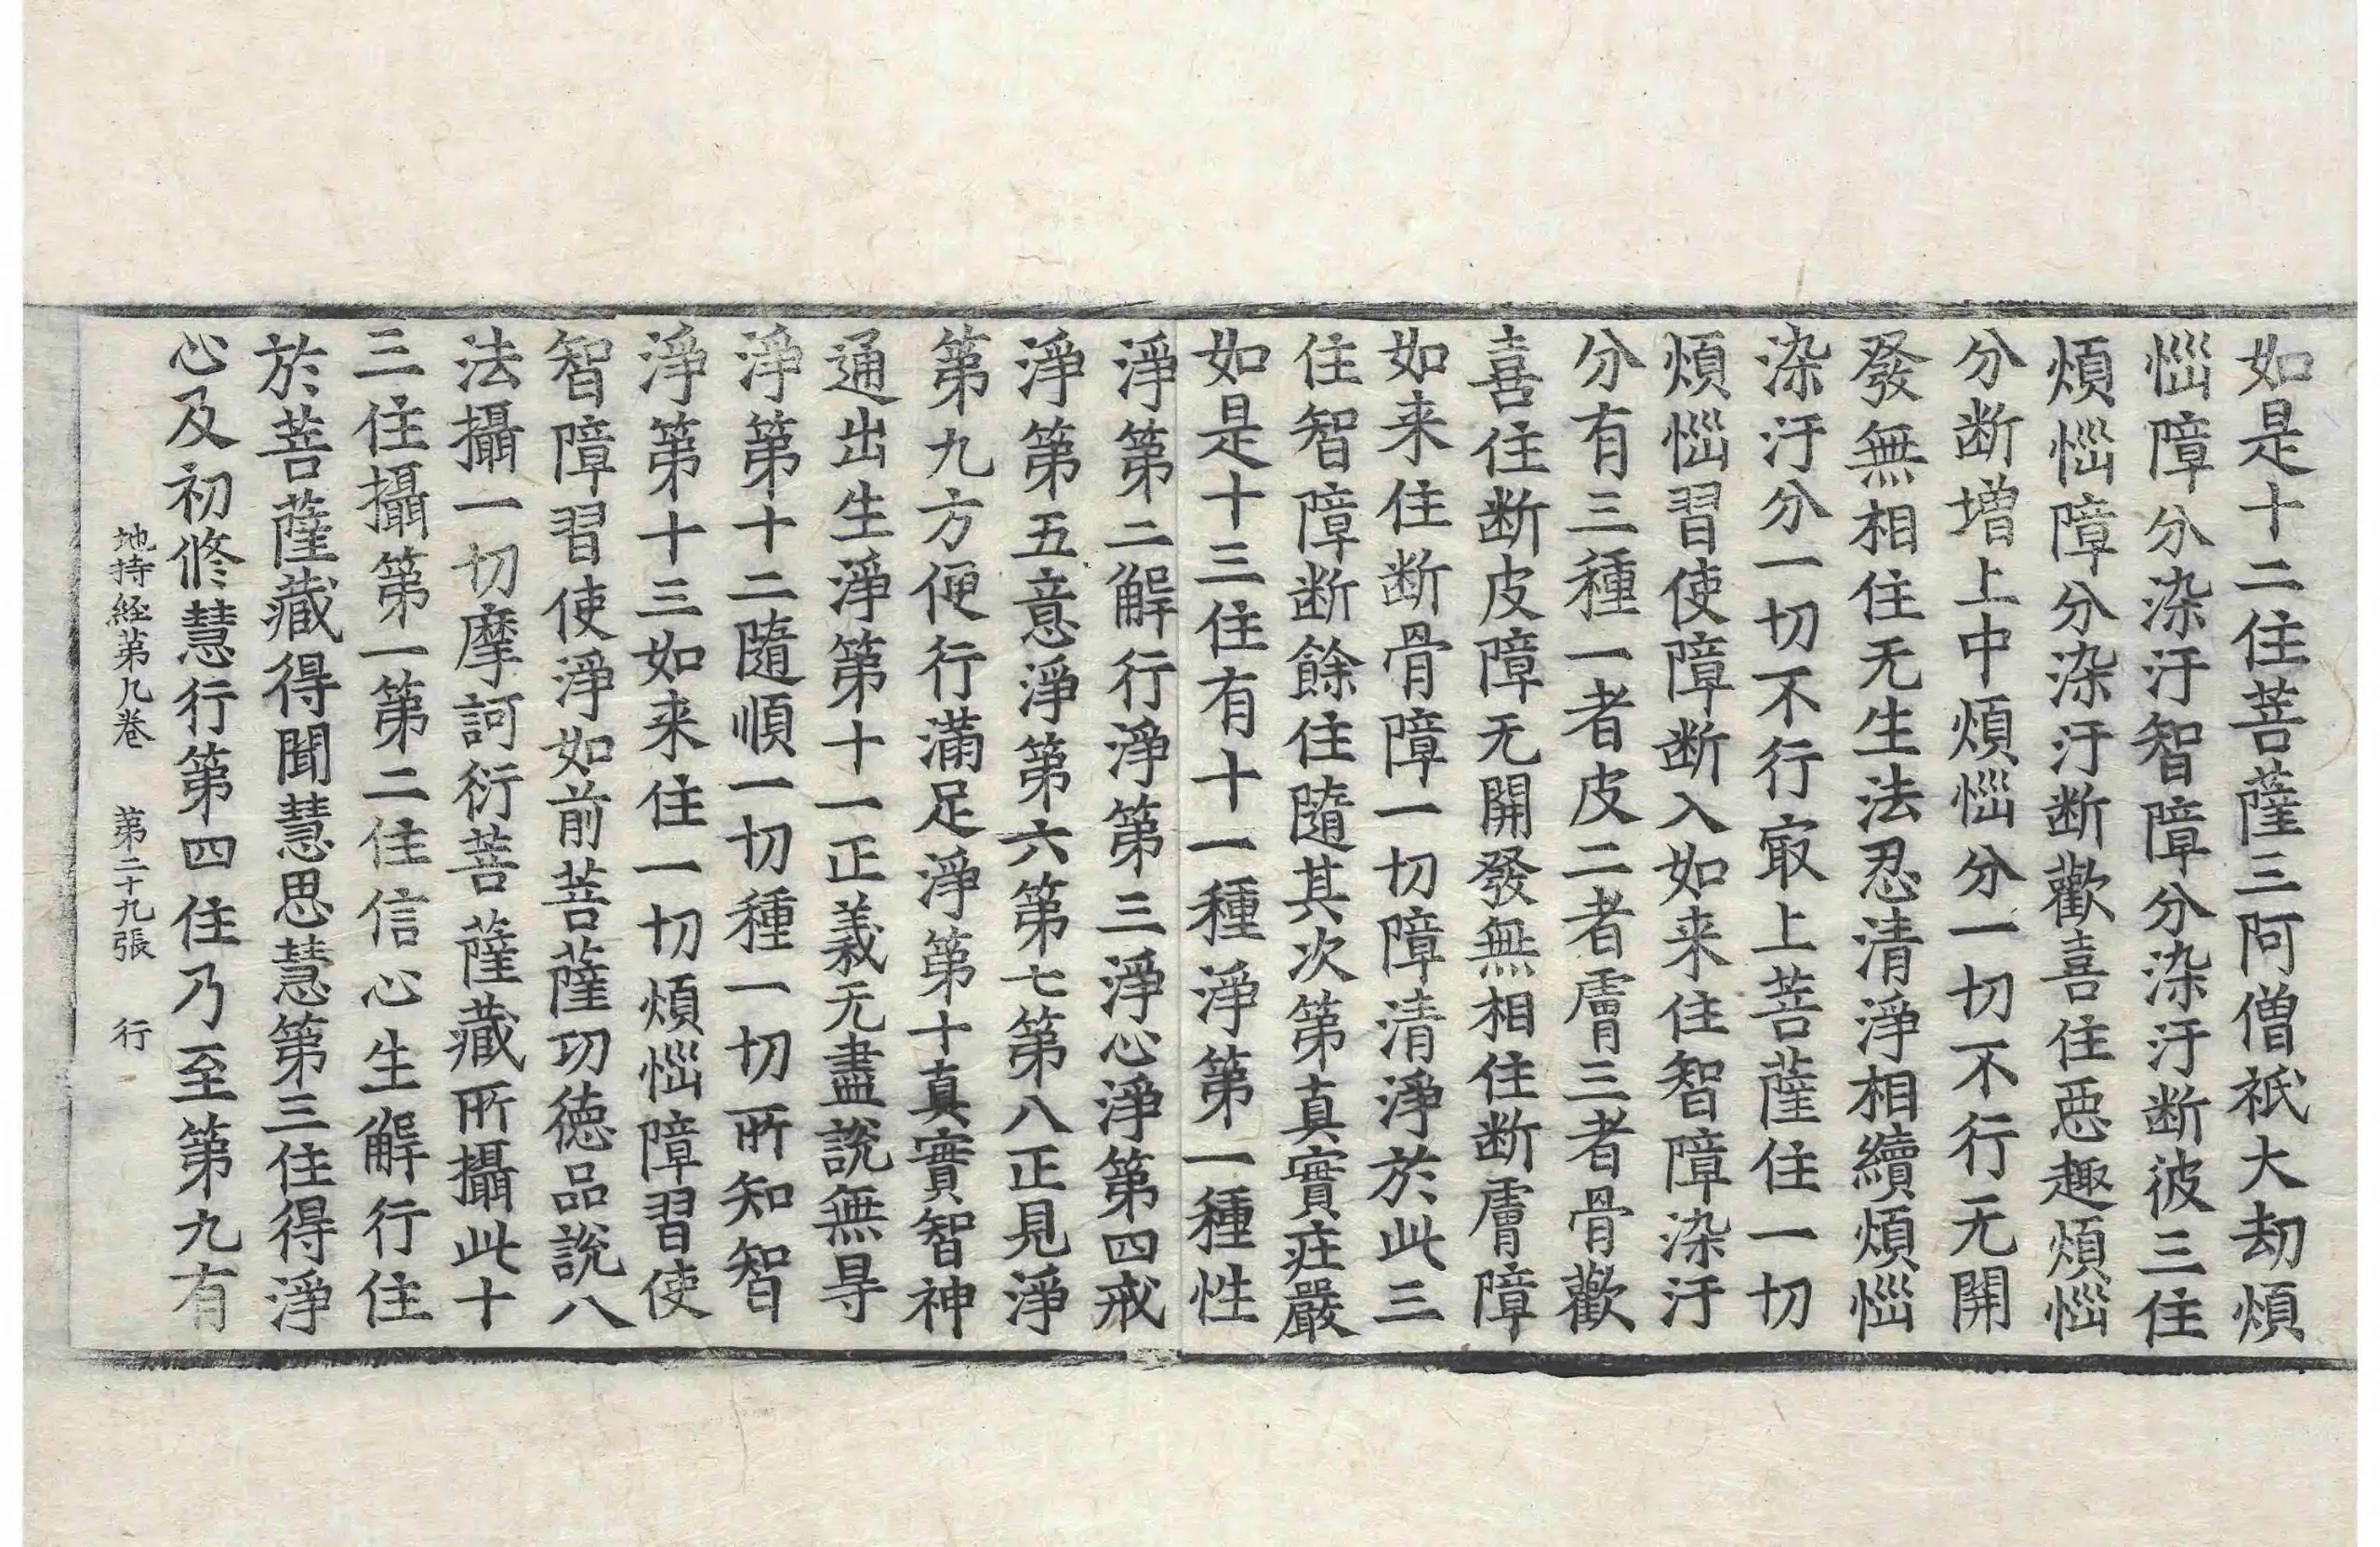 如是十二住菩薩三阿僧祇大劫煩
惱障分染汙智障分染汙断彼三住
煩惱障分染汙断歡喜住惡趣煩惱
分断增上中煩惱分一切不行无開
發無相住无生法忍清淨相續煩惱
染汙分一切不行㝡上菩薩住一切
煩惱習使障断入如来住智障染汙
分有三種一者皮二者膚三者骨歡
喜住断皮障无開發無相住断膚障
如来住断骨障一切障清淨於此三
住智障断餘住隨其次第真實莊嚴
如是十三住有十一種淨第一種性
淨第二解行淨第三淨心淨第四戒
淨第五意淨第六第七第八正見淨
第九方便行滿足淨第十真實智神
通出生淨第十一正義无盡說無㝵
淨第十二隨順一切種一切所知智
淨第十三如来住一切煩惱障習使
智障習使淨如前菩薩功德品說八
法攝一切摩訶衍菩薩藏所攝此十
三住攝第一第二住信心生解行住
於菩薩藏得聞慧思慧第三住得淨
心及初修慧行第四住乃至第九有
地持経第九巻 第二十九張 行